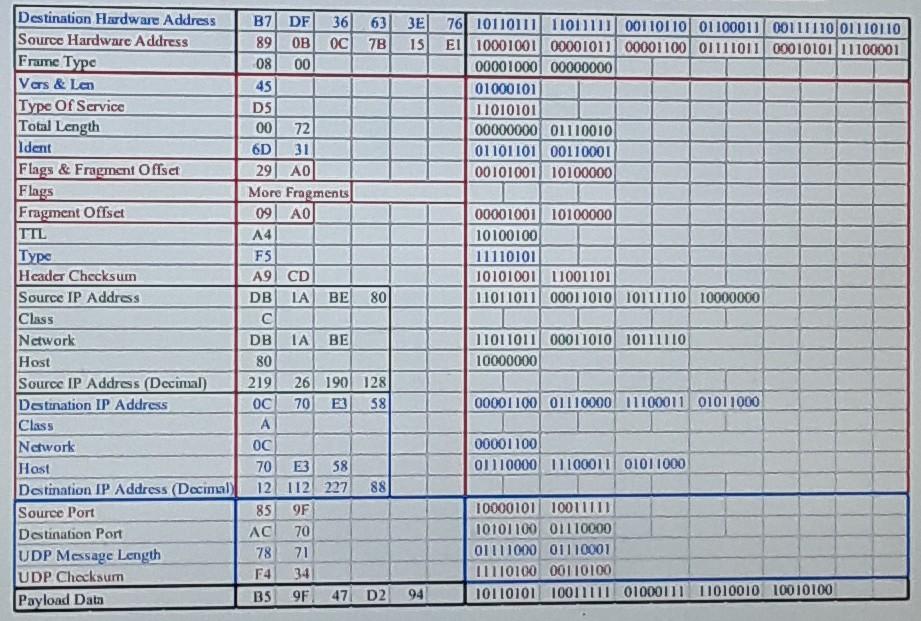 Destination Hardware Address B7 DF 36 63 3E 76 10110111 11011111 00110110 01100011 00111110 01110110
Source Hardware Address 89 0B 0C 7B 15 E1 10001001 00001011 00001100 01111011 00010101 11100001
Frame Type 08 00 00001000 00000000
Vers & Len 45 01000101
Type Of Service D5 11010101
Total Length 00 72 00000000 01110010
Ident 6D 31 01101101 00110001
Flags & Fragment Offset 29 A0 00101001 10100000
Flags More Fragments
Fragment Offset 09 A0 00001001 10100000
TTL A4 10100100
Type F5 11110101
Header Checksum A9 CD 10101001 11001101
Source IP Address DB 1A BE 80 11011011 00011010 10111110 10000000
Class C
Network DB 1A BE 11011011 00011010 10111110
Host 80 10000000
Source IP Address (Decimal) 219 26 190 128
Destination IP Address 0C 70 E3 58 00001100 01110000 11100011 01011000
Class A
Network 0C 00001100
Host 70 E3 58 01110000 11100011 01011000
Destination IP Address (Decimal) 12 112 227 88
Source Port 85 9F 10000101 10011111
Destination Port AC 70 10101100 01110000
UDP Message Length 78 71 01111000 01110001
UDP Checksum F4 34 11110100 00110100
Payload Data B5 9F 47 D2 94 10110101 10011111 01000111 11010010 10010100